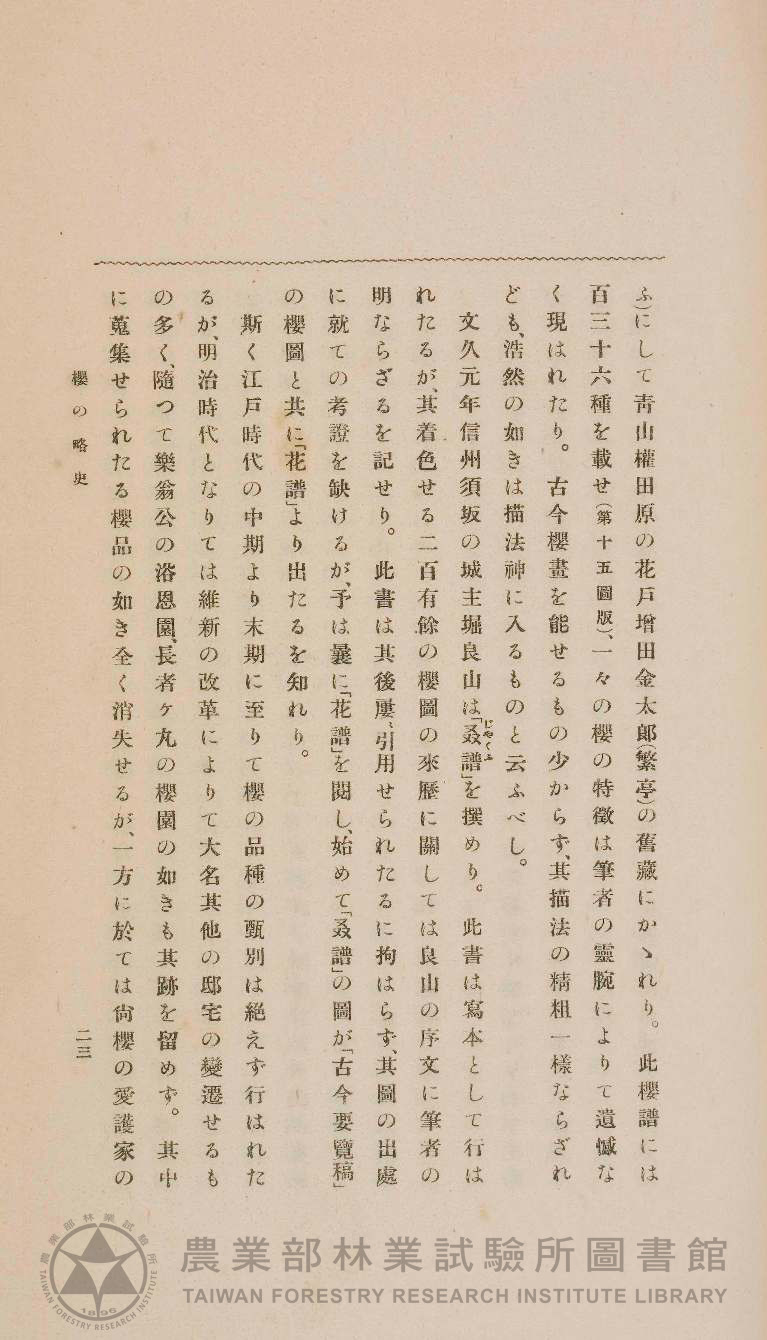 ふ)にして靑山權田原の花戶增田金太郞(繁亭)の舊藏にかゝれり。此櫻譜には
百三十六種を載せ(第十五圖版)、一々の櫻の特徵は筆者の靈腕によりて遺憾な
く現はれたり。古今櫻畫を能せるもの少からず、其描法の精粗一樣ならざれ
ども、浩然の如きは描法神に入るものと云ふべし。
文久元年信州須坂の城主堀良山は「叒譜」を撰めり。此書は寫本として行は
じやくふ
れたるが、其着色せる二百有餘の櫻圖の來歷に關しては良山の序文に筆者の
明ならざるを記せり。此書は其後屢〻引用せられたるに拘はらず、其圖の出處
に就ての考證を缺けるが、予は曩に「花譜」を閱し、始めて「叒譜」の圖が「古今要覽稿」
の櫻圖と共に「花譜」より出たるを知れり。
斯く江戶時代の中期より末期に至りて櫻の品種の甄別は絕えず行はれた
るが、明治時代となりては維新の改革によりて大名其他の邸宅の變遷せるも
の多く、隨つて樂翁公の浴恩園、長者ヶ丸の櫻園の如きも其跡を留めず。其中
に蒐集せられたる櫻品の如き全く消失せるが、一方に於ては尙櫻の愛護家の
櫻の略史
二三
農業部林業試驗所圖書館
TAIWAN FORESTRY RESEARCH INSTITUTE LIBRARY
農業部林業試驗所
TAIWAN FORESTRY RESEARCH INSTITUTE
1896